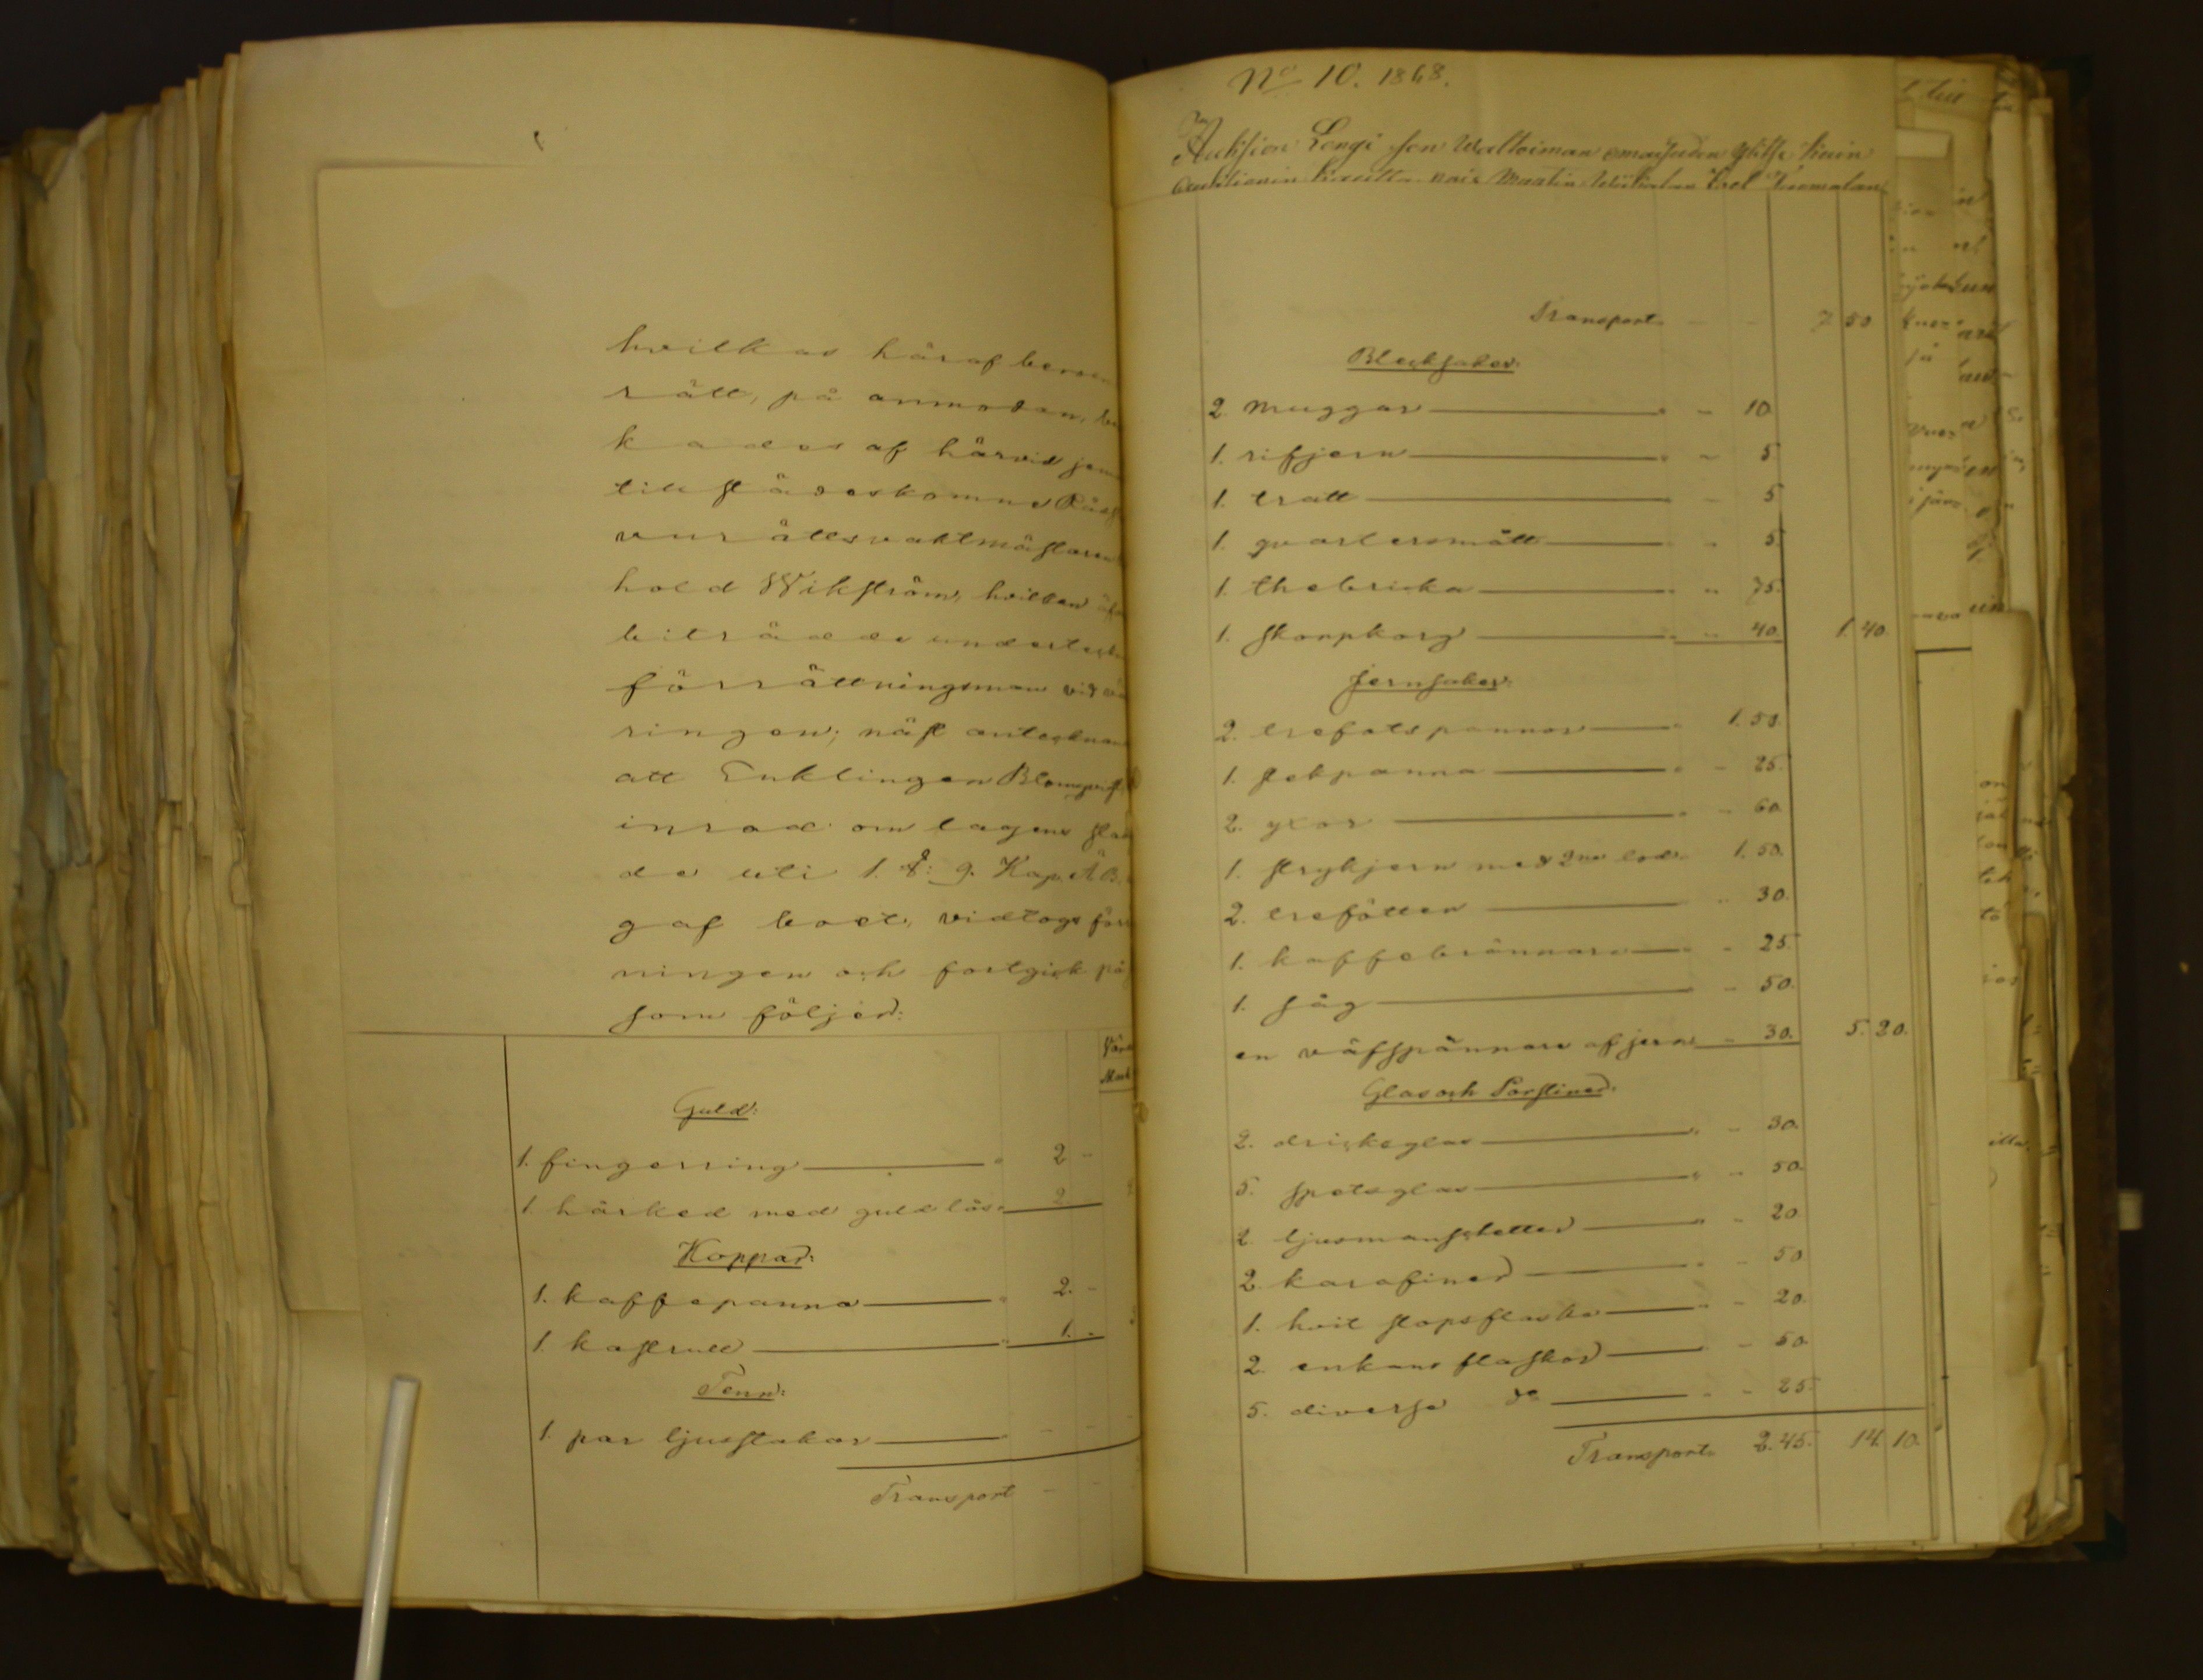 hvilkas häraf beroen
rätt, på anmodan, be
kades af härvid jem
tillstädeskomne Råds
vurättsvaktmästaren
hold Wikström, hvilken äfv
biträdde underteckn
förrättningsman vid vä
ringen; näst antecknan
att Enklingen Blomqvist
inrad om lagens stad
de uti 1. §: 9. Kap. Ä. B.
gaf boet, vidtogs förr
ningen och fortgick på
som följer:
Värd
Mark
Guld:
1. fingerring 2 -
1. hårked med guld lås 2
Koppar:
1. kaffepanna 2. -
1. kastrull 1. -
Tenn:
1. par ljusstakar - -
Transport - -
No 10. 1868.
Auksion Longi son Waltoiman omaisuden ylitse kuin
auktionin kautta nais Maalin
Transport - - 7 50
Blecksaker:
2. muggar " - 10
1. rifjern " - 5
1. tratt - 5
1. qvartersmått " - 5
1. thebricka " - 75.
1. skorpkorg " - 40. 1. 40.
Jernsaker:
2. trefotspannor " 1. 50.
1. stekpanna " - 25.
2. yxor " - 60
1. strykjern med 2ne lod. 1. 50.
2. trefötter - 30.
1. kaffebrännare " - 25.
1. såg - 50.
en väfspännare af jern - 30. 5. 20.
Glas och Porsliner.
2. dricksglas " - 30.
5. spetsglas " - 50.
2. ljusmanschetter " - 20
2. karafiner " - 50
1. hvit stopsflaska " - 20
2. enkans flaskor - 50
5. diverse do " - 25.
Transport 2. 45. 14. 10.